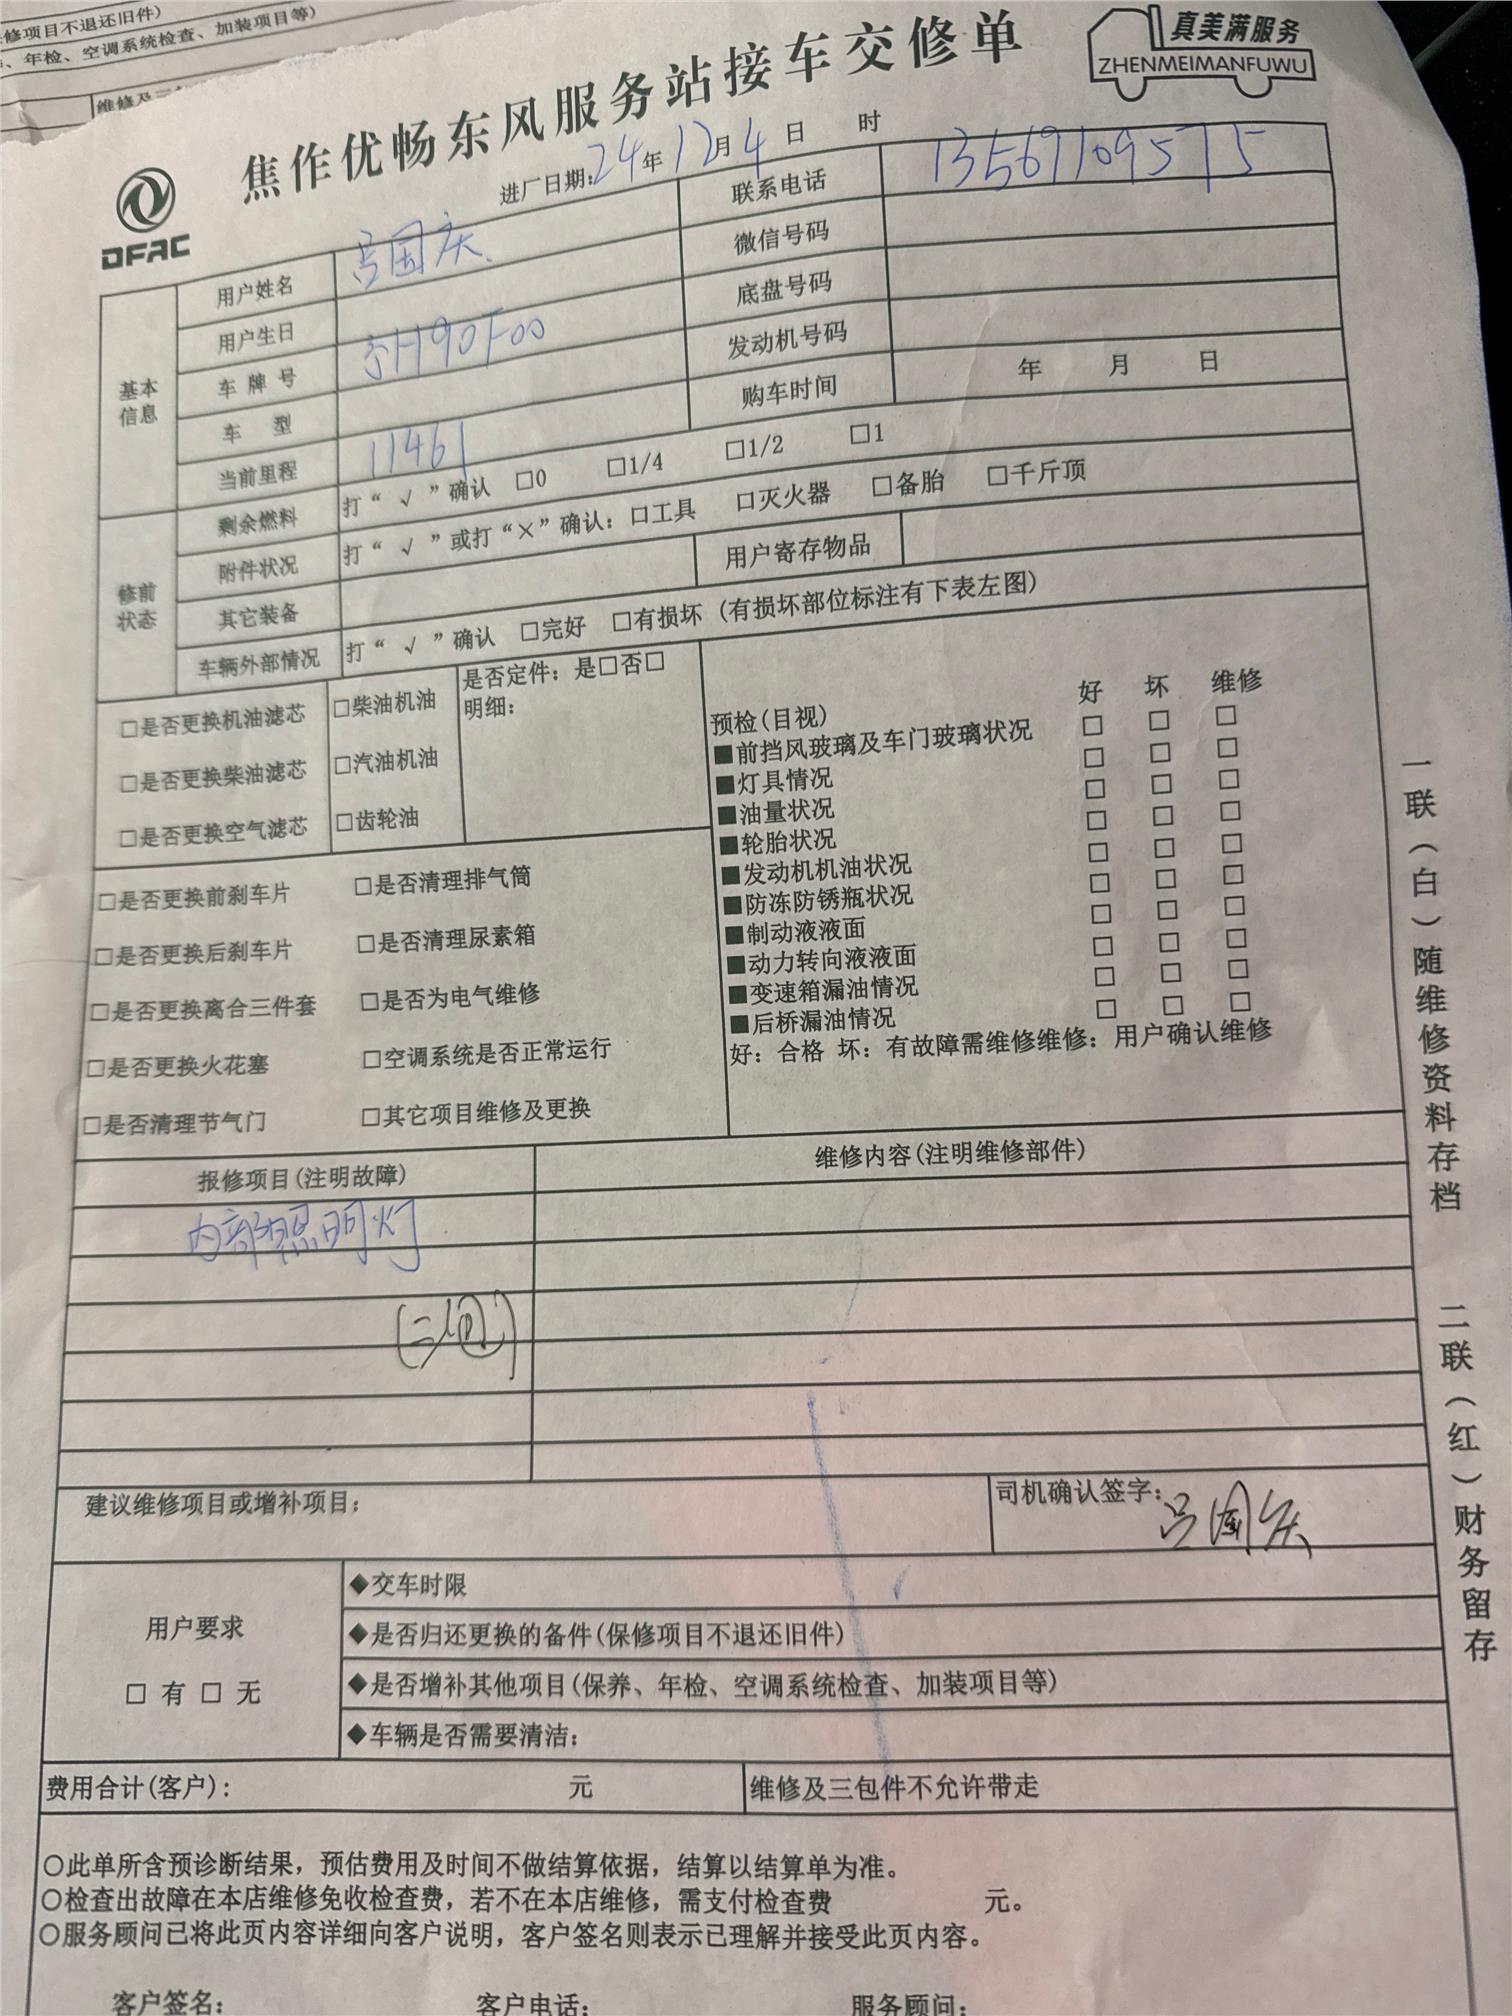 修项目不退还旧件)
、年检、空调系统检查、加装项目等)
真美满服务
ZHENMEIMANFUWU
焦作优畅东风服务站接车交修单
DFAC
进厂日期:24年12月4日 时
基本信息
用户姓名 吕国庆 联系电话 13569109575
用户生日 微信号码
车牌号 底盘号码
车型 发动机号码
当前里程 11461 购车时间 年 月 日
修前状态
剩余燃料 打“√”确认 □0 □1/4 □1/2 □1
附件状况 打“√”或打“×”确认:□工具 □灭火器 □备胎 □千斤顶
其它装备 用户寄存物品
车辆外部情况 打“√”确认 □完好 □有损坏(有损坏部位标注有下表左图)
□是否更换机油滤芯 □柴油机油 是否定件:是□否□
明细:
□是否更换柴油滤芯 □汽油机油
□是否更换空气滤芯 □齿轮油
□是否更换前刹车片 □是否清理排气筒
□是否更换后刹车片 □是否清理尿素箱
□是否更换离合三件套 □是否为电气维修
□是否更换火花塞 □空调系统是否正常运行
□是否清理节气门 □其它项目维修及更换
预检(目视) 好 坏 维修
■前挡风玻璃及车门玻璃状况 □ □ □
■灯具情况 □ □ □
■油量状况 □ □ □
■轮胎状况 □ □ □
■发动机机油状况 □ □ □
■防冻防锈瓶状况 □ □ □
■制动液液面 □ □ □
■动力转向液液面 □ □ □
■变速箱漏油情况 □ □ □
■后桥漏油情况 □ □ □
好:合格 坏:有故障需维修维修:用户确认维修
报修项目(注明故障) 维修内容(注明维修部件)
内部照明灯
建议维修项目或增补项目:
司机确认签字:吕国庆
用户要求
□有□无
◆交车时限
◆是否归还更换的备件(保修项目不退还旧件)
◆是否增补其他项目(保养、年检、空调系统检查、加装项目等)
◆车辆是否需要清洁:
费用合计(客户): 元 维修及三包件不允许带走
○此单所含预诊断结果,预估费用及时间不做结算依据,结算以结算单为准。
○检查出故障在本店维修免收检查费,若不在本店维修,需支付检查费 元。
○服务顾问已将此页内容详细向客户说明,客户签名则表示已理解并接受此页内容。
客户签名: 客户电话: 服务顾问:
一联(白)随维修资料存档 二联(红)财务留存